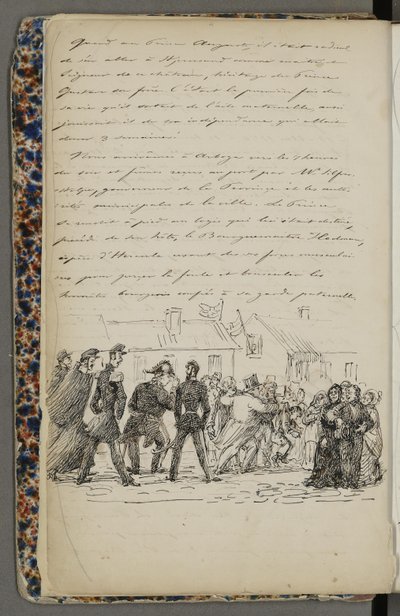 Quand au Prince August, il était radieux
de s'en aller à Stjernsund comme maître et
Seigneur de ce château, héritage du Prince
Gustave son frère. C'était la première fois de
sa vie qu'il sortait de l'aile maternelle, aussi
jouissait il de son indépendance qui allait
durer 3 semaines!
Nous arrivâmes à Arboga vers les 7 heures
du soir et fûmes reçus au port par Mr.
gouverneur de la Province et les auto
rités municipales de la ville. Le Prince
se rendit à pied au logis qui lui était destiné,
précédé de son hôte, le Bourguemaitre
espèce d'Hercule usant de ses forces musculai
res pour percer la foule et bousculer les
honnêtes bourgeois confiés à sa garde paternelle.